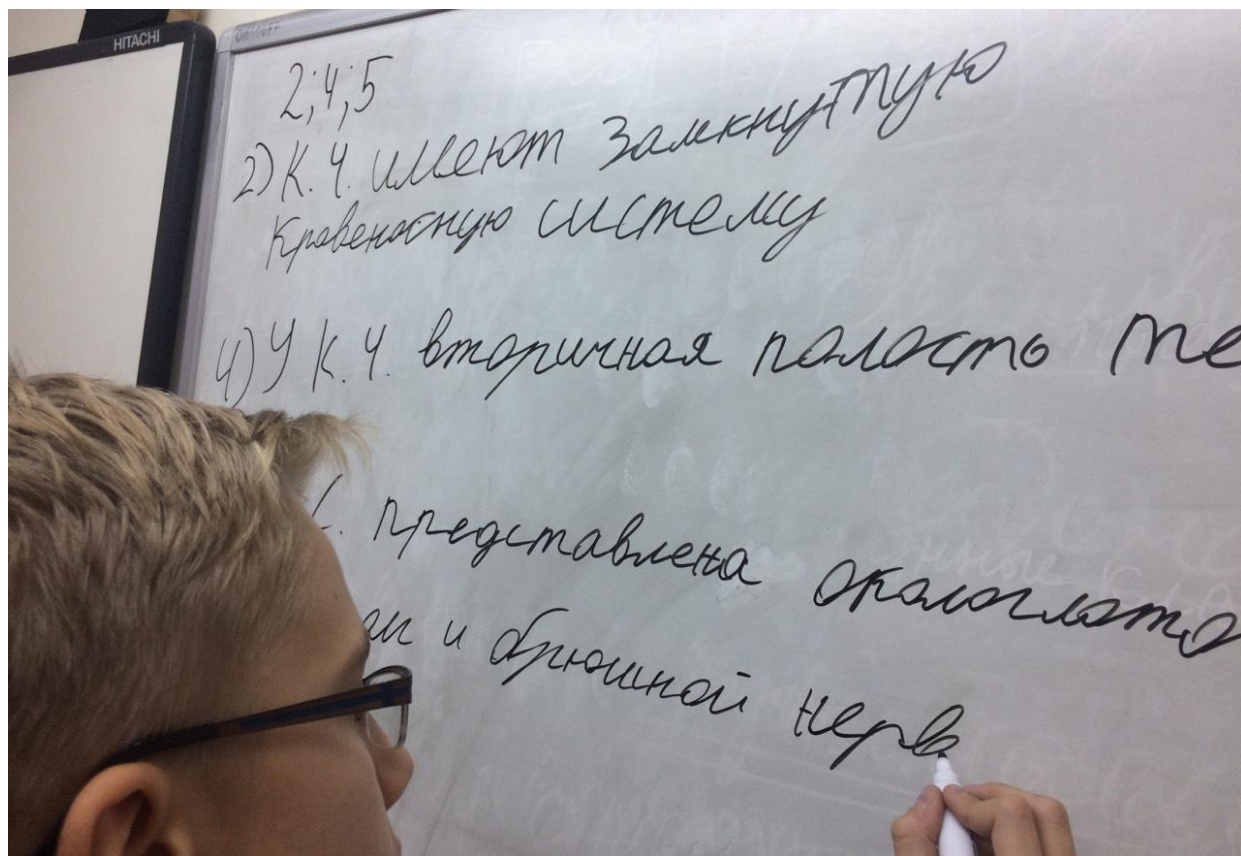 HITACHI
2;4;5
2) К.Ч. имеют замкнутую
Кровеносную систему
4) У К.Ч. вторичная полость те
представлена окологлото
и брюшной нерв